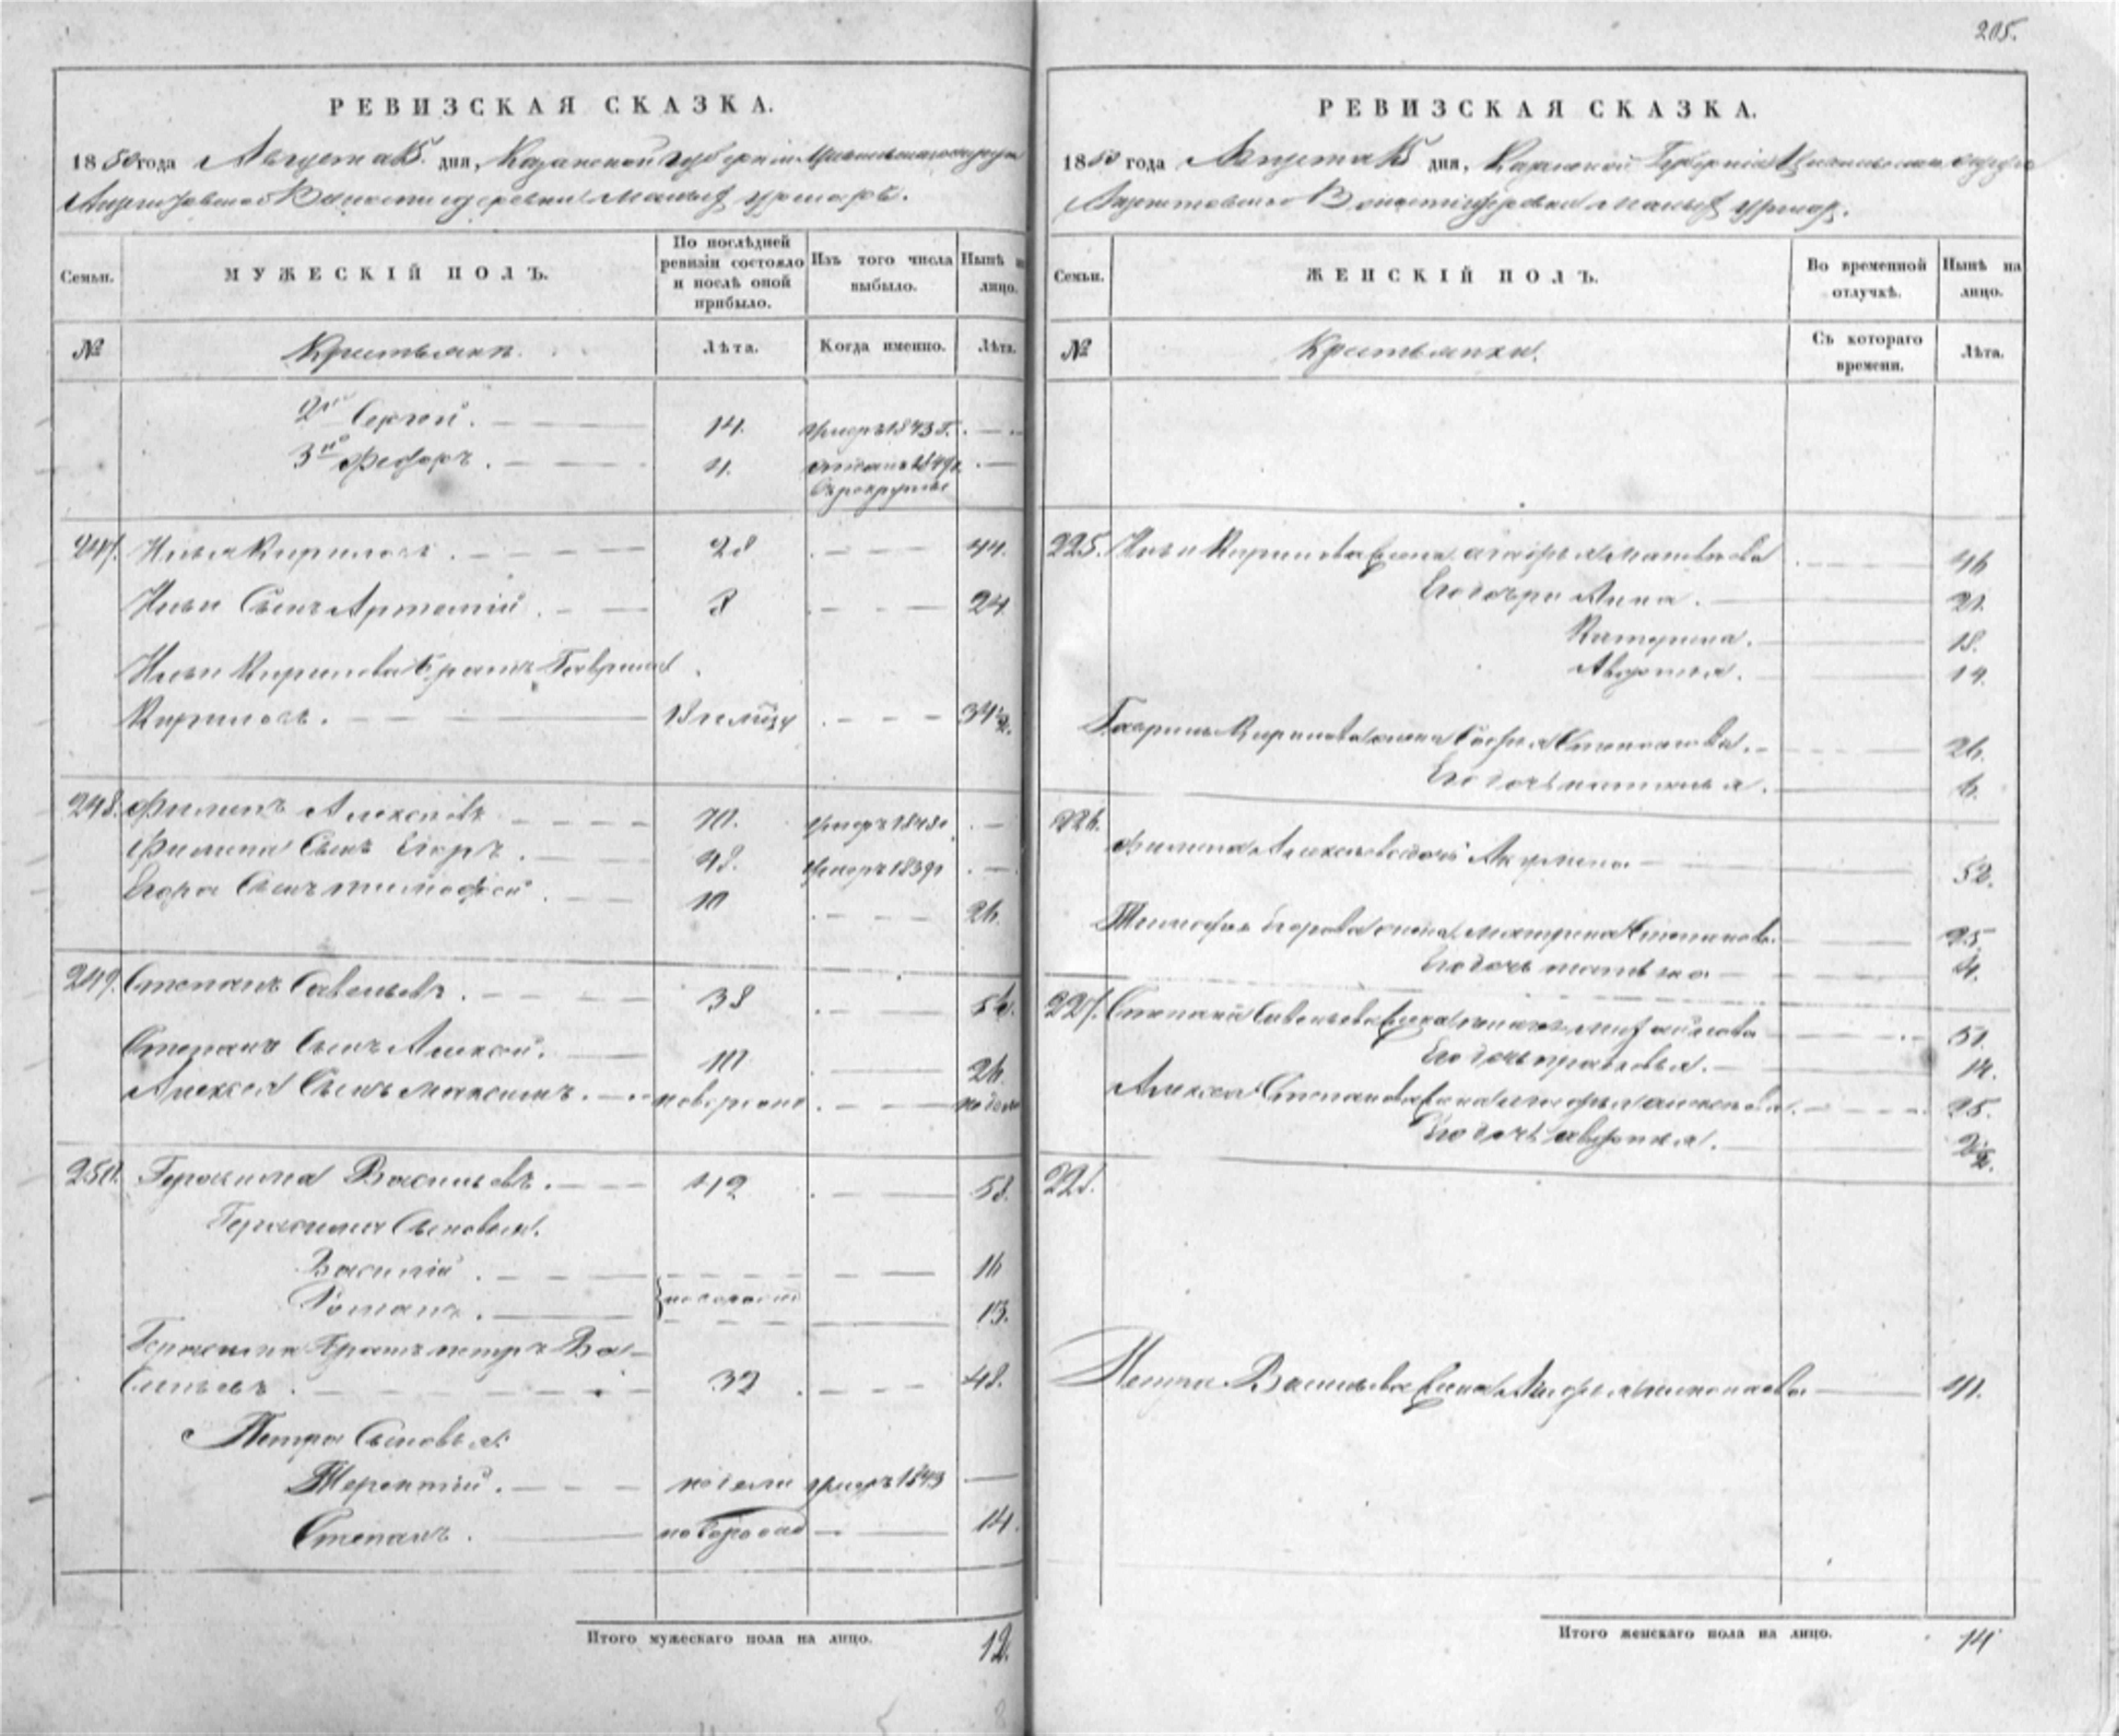 205.
РЕВИЗСКАЯ СКАЗКА.
1850 года Августа 15 дня, Казанской губерніи округа
Волости деревни Малыхъ Урмаръ.
Семьи. МУЖЕСКІЙ ПОЛЪ. По послѣдней ревизіи состояло и послѣ оной прибыло. Изъ того числа выбыло. Нынѣ на лицо.
№ Крестьяне. Лѣта. Когда именно. Лѣта.
2й Сергей. 14. умеръ 1843 г.
3й Федоръ. 4.
въ рекруты
247. Илья Кириловъ. 28 44.
Ильи Сынъ Артемій 8 24.
Ильи Кирилова братъ Гаврила
Кириловъ. 34½.
248. Филипъ Алексеевъ 70. умеръ 1848
Филипа Сынъ Егоръ. 48. умеръ 1839
Егора Сынъ Тимофей 10 26.
249. Степанъ Савельевъ. 38 54.
Степана Сынъ Алексей. 10 26.
Алексея Сынъ Максимъ. новорожд
250. Герасимъ Васильевъ. 42 58.
Герасима Сыновья.
Василій. 16
Романъ. новорожд 13.
Герасима братъ Петръ Ва-
сильевъ 32 48.
Петра Сыновья:
Терентій. умеръ 1843
Степанъ. новорожд 14.
Итого мужескаго пола на лицо. 12.
РЕВИЗСКАЯ СКАЗКА.
1850 года Августа 15 дня, Казанской Губерніи округа
Волости деревни Малыхъ Урмаръ.
Семьи. ЖЕНСКІЙ ПОЛЪ. Во временной отлучкѣ. Нынѣ на лицо.
№ Крестьянки. Съ котораго времени. Лѣта.
225. Ильи Кирилова жена Матвеева 46
Его дочери Анна. 21.
Катерина. 18.
Авдотья. 14.
Гаврилы Кирилова жена Софья Степанова. 26.
Его дочь Наталья. 6.
226.
Филипа Алексеева дочь Акулина 52.
Тимофея Егорова жена Матрена Степанова. 25.
Его дочь Татьяна 4.
227. Степана Савельева жена Михайлова 51.
Его дочь Прасковья. 14.
Алексея Степанова жена Алексеева. 25.
Его дочь Авдотья. 2½.
228.
Петра Васильева жена Николаева 41.
Итого женскаго пола на лицо. 14